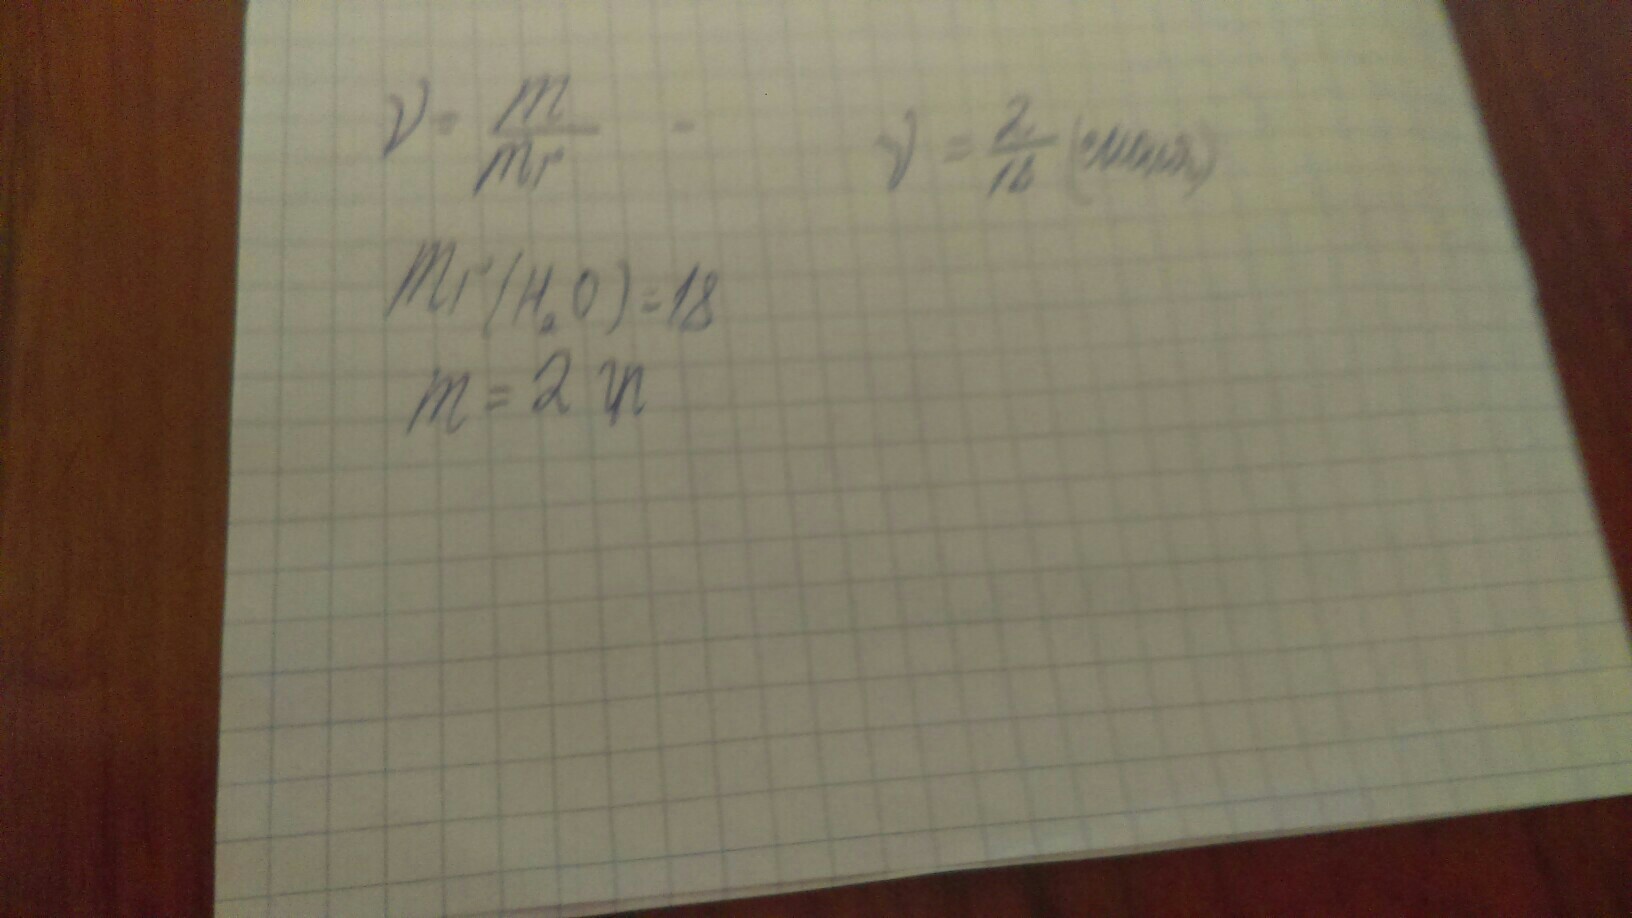 ν = m/mr - ν = 2/18
Mr(H₂O) = 18
m = 2 гр